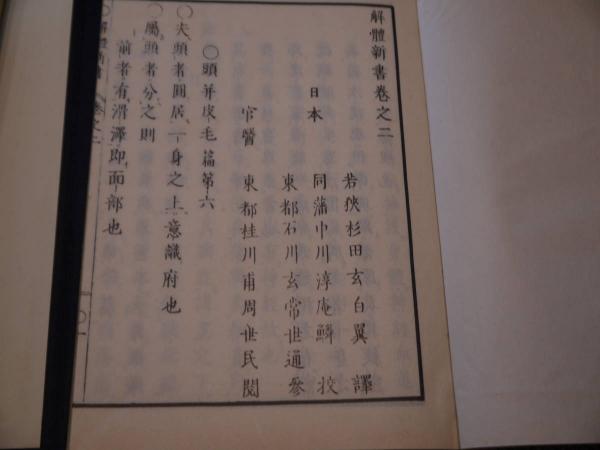 解體新書卷之二
若狹杉田玄白翼 譯
日本 同藩中川淳庵鱗 校
東都石川玄常世通 參
官醫 東都桂川甫周世民 閱
〇頭并皮毛篇第六
〇夫頭者圓居一身之上意識府也
〇屬頭者分之則
前者有滑澤即面部也
〇解體新書 卷之二